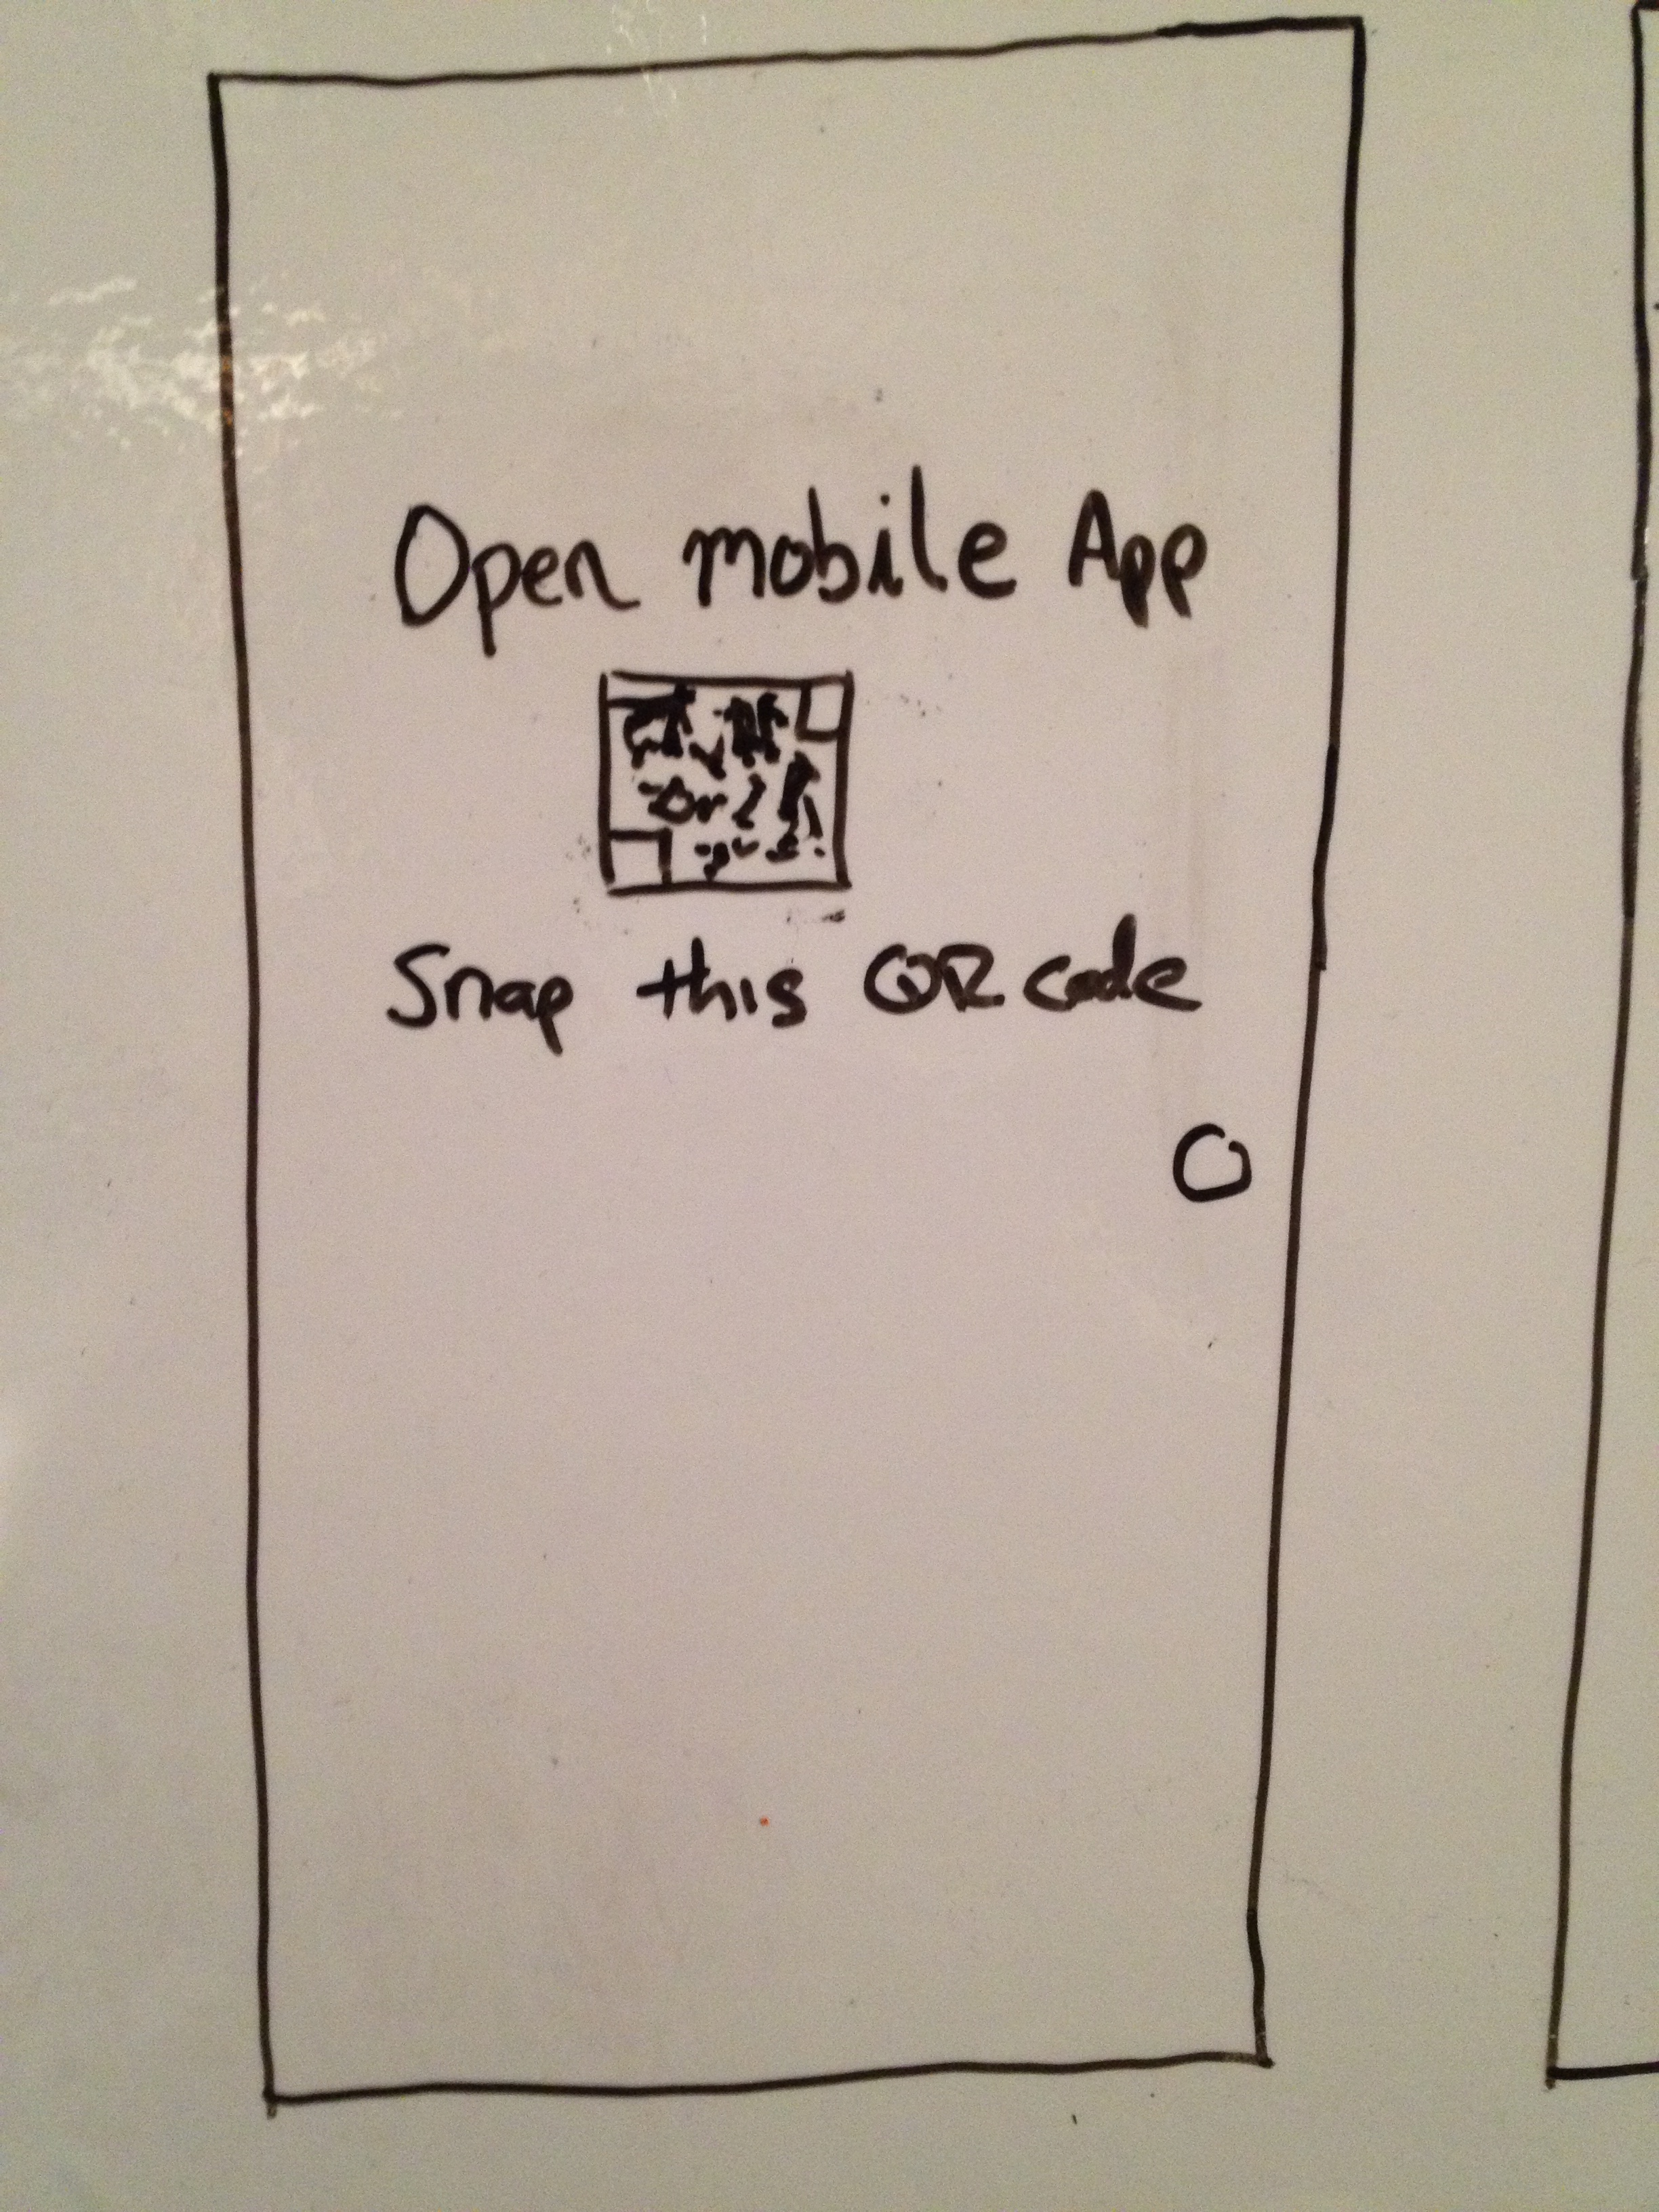 Open mobile App
Snap this QR code